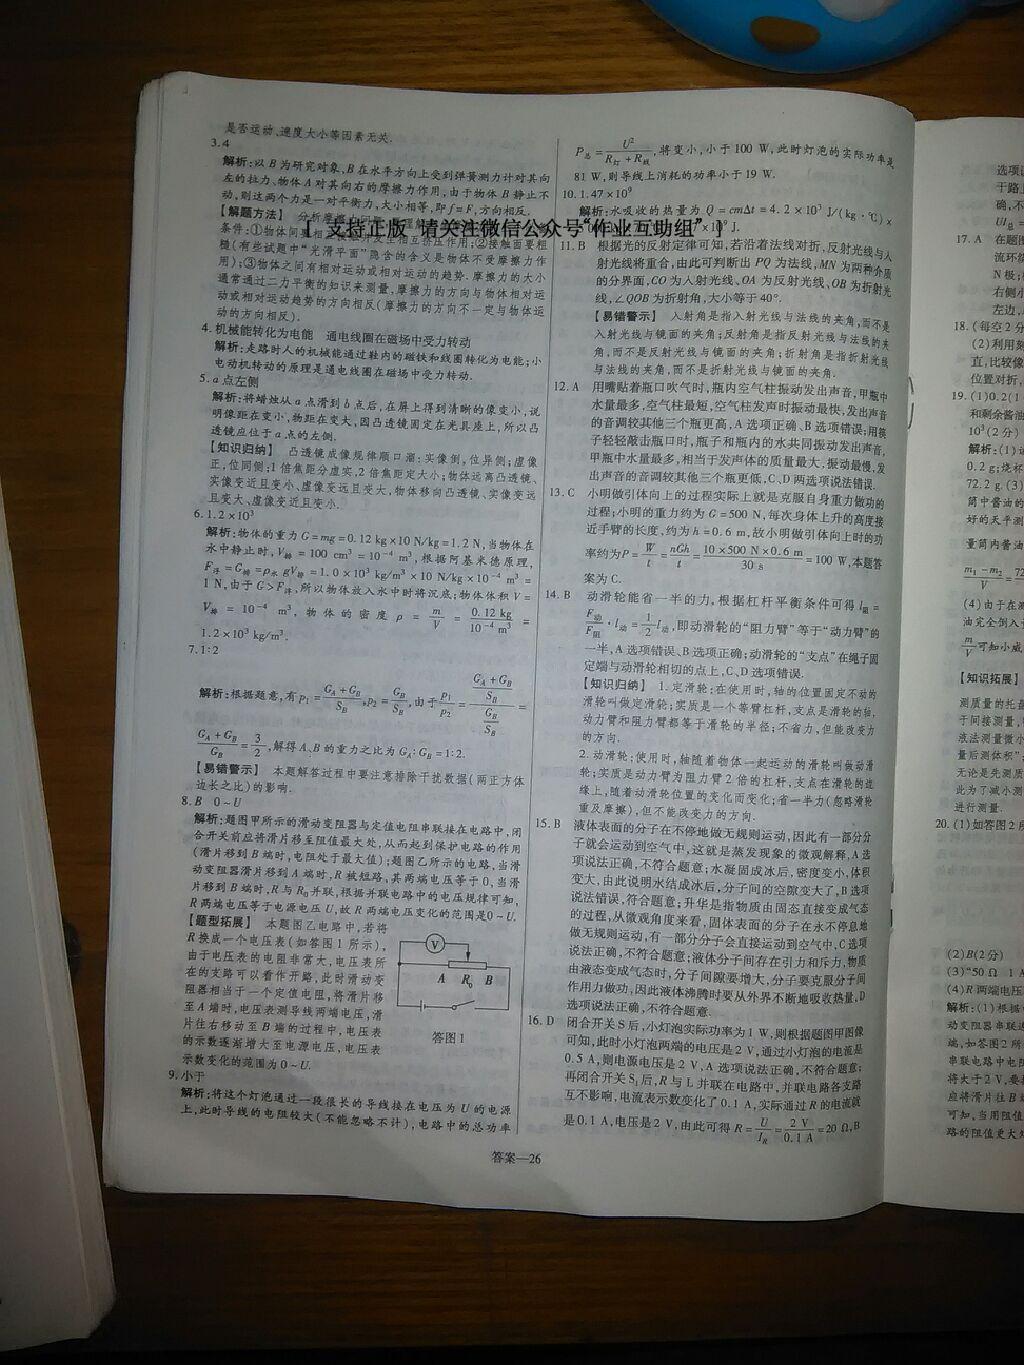 是否运动、速度大小等因素无关.
3.4
解析:以B为研究对象,B在水平方向上受到弹簧测力计对其向
左的拉力、物体A对其向右的摩擦力作用,由于物体B静止不
动,则这两个力是一对平衡力,大小相等,即f=F,方向相反.
【解题方法】 分析摩擦力问题
【 支持正版 请关注微信公众号“作业互助组” 】
条件:①物体间要相互接触并发生相互挤压作用;②接触面要粗
糙(有些试题中“光滑平面”隐含的含义是物体不受摩擦力作
用);③物体之间有相对运动或相对运动的趋势.摩擦力的大小
通常通过二力平衡的知识来测量,摩擦力的方向与物体相对运
动或相对运动趋势的方向相反(摩擦力的方向不一定与物体运
动的方向相反).
4.机械能转化为电能 通电线圈在磁场中受力转动
解析:走路时人的机械能通过鞋内的磁铁和线圈转化为电能;小
电动机转动的原理是通电线圈在磁场中受力转动.
5.a点左侧
解析:将蜡烛从a点滑到b点后,在屏上得到清晰的像变小,说
明像距在变小,物距在变大,因凸透镜固定在光具座上,所以凸
透镜应位于a点的左侧.
【知识归纳】 凸透镜成像规律顺口溜:实像倒,位异侧;虚像
正,位同侧;1倍焦距分虚实,2倍焦距定大小;物体远离凸透镜、
实像变近且变小、虚像变远且变大,物体移向凸透镜、实像变远
且变大、虚像变近且变小.
6.1.2×10³
解析:物体的重力G=mg=0.12 kg×10 N/kg=1.2 N,当物体在
水中静止时,V排=100 cm³=10⁻⁴ m³,根据阿基米德原理,
F浮=G排=ρ水gV排=1.0×10³ kg/m³×10 N/kg×10⁻⁴ m³=
1 N.由于G>F浮,所以物体放入水中时将沉底;物体体积V=
V排=10⁻⁴ m³,物体的密度ρ=m/V=0.12 kg/10⁻⁴ m³=
1.2×10³ kg/m³.
7.1:2
解析:根据题意,有p₁=(G_A+G_B)/S_B,p₂=G_B/S_B,由于p₁/p₂=((G_A+G_B)/S_B)/(G_B/S_B)=
(G_A+G_B)/G_B=3/2,解得A、B的重力之比为G_A:G_B=1:2.
【易错警示】 本题解答过程中要注意排除干扰数据(两正方体
边长之比)的影响.
8.B 0~U
解析:题图甲所示的滑动变阻器与定值电阻串联接在电路中,闭
合开关前应将滑片移至阻值最大处,从而起到保护电路的作用
(滑片移到B端时,电阻处于最大值);题图乙所示的电路,当滑
动变阻器滑片移到A端时,R被短路,其两端电压等于0,当滑
片移到B端时,R与R₀并联,根据并联电路中的电压规律可知,
R两端电压等于电源电压U,故R两端电压变化的范围是0~U.
【题型拓展】 本题图乙电路中,若将
R换成一个电压表(如答图1所示),
由于电压表的电阻非常大,电压表所
在的支路可以看作开路,此时滑动变
阻器相当于一个定值电阻,将滑片移
至A端时,电压表测导线两端电压,滑
片往右移动至B端的过程中,电压表
的示数逐渐增大至电源电压,电压表
示数变化的范围为0~U.
V
A R₀ B
答图1
9.小于
解析:将这个灯泡通过一段很长的导线接在电压为U的电源
上,此时导线的电阻较大(不能忽略不计),电路中的总功率
P总=U²/(R灯+R线),将变小,小于100 W,此时灯泡的实际功率是
81 W,则导线上消耗的功率小于19 W.
10.1.47×10⁹
解析:水吸收的热量为Q=cmΔt=4.2×10³ J/(kg·℃)×
11.B 根据光的反射定律可知,若沿着法线对折,反射光线与入
射光线将重合,由此可判断出PQ为法线,MN为两种介质
的分界面,CO为入射光线、OA为反射光线、OB为折射光
线,∠QOB为折射角,大小等于40°.
【易错警示】 入射角是指入射光线与法线的夹角,而不是
入射光线与镜面的夹角;反射角是指反射光线与法线的夹
角,而不是反射光线与镜面的夹角;折射角是指折射光线
与法线的夹角,而不是折射光线与镜面的夹角.
12.A 用嘴贴着瓶口吹气时,瓶内空气柱振动发出声音,甲瓶中
水量最多,空气柱最短,空气柱发声时振动最快,发出声音
的音调较其他三个瓶更高,A选项正确、B选项错误;用筷
子轻轻敲击瓶口时,瓶子和瓶内的水共同振动发出声音,
甲瓶中水量最多,相当于发声体的质量最大,振动最慢,发
出声音的音调较其他三个瓶更低,C、D两选项说法错误.
13.C 小明做引体向上的过程实际上就是克服自身重力做功的
过程;小明的重力约为G=500 N,每次身体上升的高度接
近手臂的长度,约为h=0.6 m,故小明做引体向上时的功
率约为P=W/t=nGh/t=(10×500 N×0.6 m)/30 s=100 W,本题答
案为C.
14.B 动滑轮能省一半的力,根据杠杆平衡条件可得l阻=
F动/F阻·l动=1/2 l动,即动滑轮的“阻力臂”等于“动力臂”的
一半,A选项错误、B选项正确;动滑轮的“支点”在绳子固
定端与动滑轮相切的点上,C、D选项错误.
【知识归纳】 1.定滑轮:在使用时,轴的位置固定不动的
滑轮叫做定滑轮;实质是一个等臂杠杆,支点是滑轮的轴,
动力臂和阻力臂都等于滑轮的半径;不省力,但能改变力
的方向.
2.动滑轮:使用时,轴随着物体一起运动的滑轮叫做动滑
轮;实质是动力臂为阻力臂2倍的杠杆,支点在滑轮的边
缘上,随着动滑轮位置的变化而变化;省一半力(忽略滑轮
重及摩擦),但不能改变力的方向.
15.B 液体表面的分子在不停地做无规则运动,因此有一部分分
子就会运动到空气中,这就是蒸发现象的微观解释,A选
项说法正确,不符合题意;水凝固成冰后,密度变小,体积
变大,由此说明水结成冰后,分子间的空隙变大了,B选项
说法错误,符合题意;升华是指物质由固态直接变成气态
的过程,从微观角度来看,固体表面的分子在永不停息地
做无规则运动,有一部分分子会直接运动到空气中,C选项
说法正确,不符合题意;液体分子间存在引力和斥力,物质
由液态变成气态时,分子间隙要增大,分子要克服分子间
作用力做功,因此液体沸腾时要从外界不断地吸收热量,D
选项说法正确,不符合题意.
16.D 闭合开关S后,小灯泡实际功率为1 W,则根据题图甲图像
可知,此时小灯泡两端的电压是2 V,通过小灯泡的电流是
0.5 A,则电源电压是2 V,A选项说法正确,不符合题意;
再闭合开关S₁后,R与L并联在电路中,并联电路各支路
互不影响,电流表示数变化了0.1 A,实际通过R的电流就
是0.1 A,电压是2 V.由此可得R=U/I_R=2 V/0.1 A=20 Ω,B
答案—26
17.A 在题
流环绕
N极;
右侧小
左边,
18.(每空2分
(2)利用刻
直,比较像
位置对折,
19.(1)0.2(1
和剩余酱油
10³(2分)
解析:(1)
0.2 g;烧杯
72.2 g.(3)
筒中酱油的
好的天平测
量筒内酱油
(4)由于在测
油完全倒入
可知小
【知识拓展】
测质量的托盘
于间接测量,
液法测量微小
量后测体积”;
无论是先测质
此为了减小测
进行测量.
20.(1)如答图2所
(2)B(2分)
(3)“50 Ω 1 A
(4)R两端电压
解析:(1)根据
动变阻器串联
端,如答图2所
串联电路中电阻
将大于2 V,要
应将滑片往B
可知,当用阻值
路的阻值更大